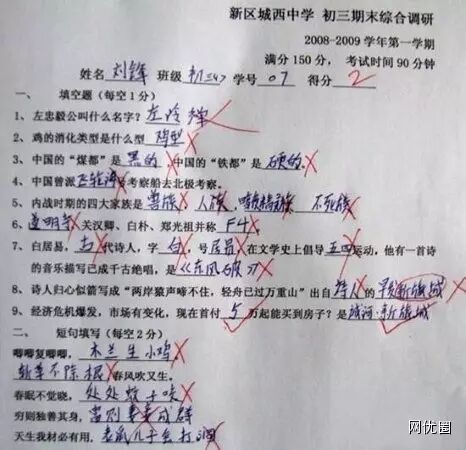 新区城西中学 初三期末综合调研
2008-2009学年第一学期
满分150分，考试时间90分钟
姓名 刘锋 班级 初三(4) 学号 07 得分 2
一、 填空题（每空1分）
1、左忠毅公叫什么名字？左冷禅
2、鸡的消化类型是什么型 鸡型
3、中国的“煤都”是 黑的，中国的“铁都”是 硬的。
4、中国曾派 飞轮海 号考察船去北极考察。
5、内战时期的四大家族是 兽族、人族、暗夜精灵族、不死族
6、道明寺、关汉卿、白朴、郑光祖并称 F4。
7、白居易，古 代诗人，字 白，号 居易，在文学史上倡导 五四 运动，他有一首诗
的音乐描写已成千古绝唱，是《东风破》
8、诗人归心似箭写成“两岸猿声啼不住，轻舟已过万重山”出自 诗人 的
9、经济危机爆发，市场有变化，现在首付 5 万起能买到房子？是 新城
二、 短句填写（每空2分）
唧唧复唧唧， 木兰生小鸡
斩草不除根 春风吹又生。
春眠不觉晓， 处处蚊子咬
穷则独善其身， 富则妻妾成群
天生我材必有用， 老鼠儿子会打洞
网优圈